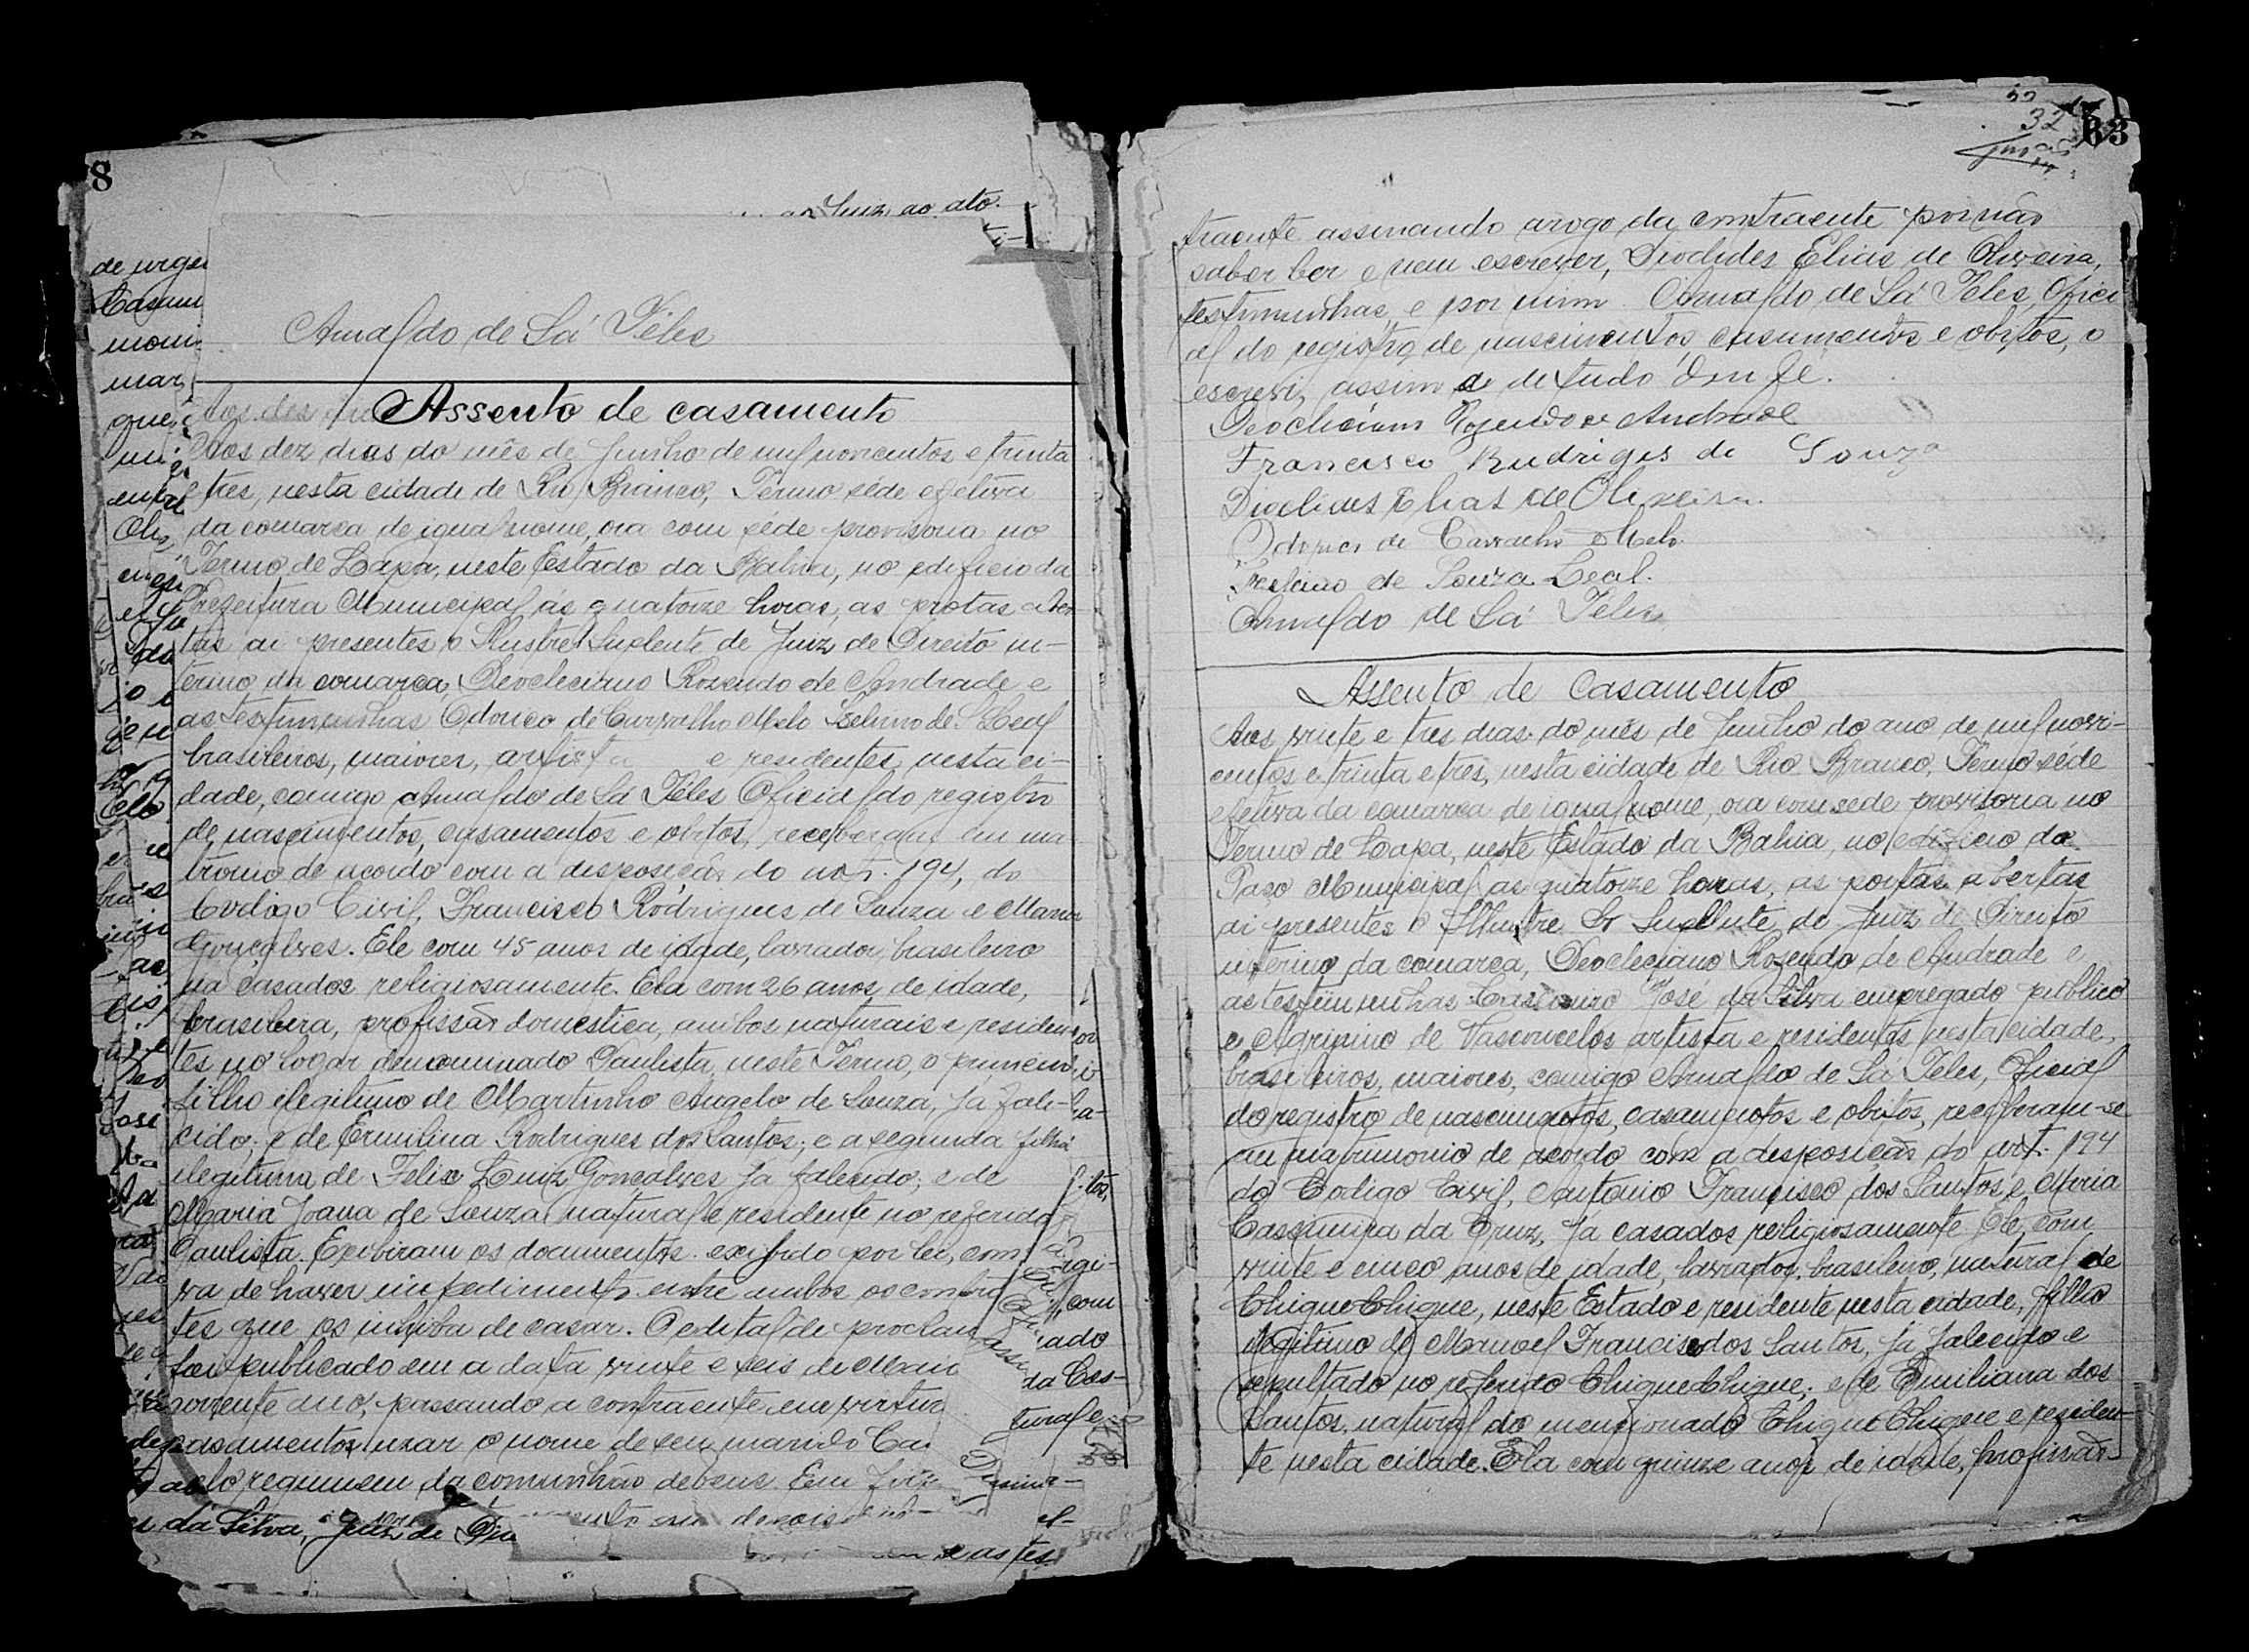 8
Juiz ao ato.
Arnaldo de Sá Teles
Assento de casamento
Aos dez dias do mês de Junho de mil novecentos e trinta
tres, nesta cidade de Rio Branco, Termo séde efetiva
da comarca de igual nome, ora com séde provisoria no
Termo de Lapa, neste Estado da Bahia, no edificio da
Prefeitura Municipal ás quatorze horas, as protas aber-
tas ai presentes o Ilustre Suplente de Juiz de Direito in-
terino da comarca, Deocleciano Rozendo de Andrade e
as testimunhas Odorico de Carvalho Melo Izelino de S. Leal
brasileiros, maiores, artista e residentes nesta ci-
dade, comigo Arnaldo de Sá Teles Oficial do registro
de nascimentos, casamentos e obitos, receberam em ma
trimonio de acordo com a disposição do art. 194, do
Codigo Civil, Francisco Rodrigues de Souza e Maria
Gonçalves. Ele com 45 anos de idade, lavrador, brasileiro
ja casados religiosamente. Ela com 26 anos de idade,
brasileira, profissão domestica, ambos naturais e residen
tes no logar denominado Paulista, neste Termo, o primeiro
filho ilegitimo de Martinho Angelo de Souza, já fale-
cido; e de Ermilina Rodrigues dos Santos; e a segunda filha
ilegitima de Felix Luiz Gonçalves já falecido; e de
Maria Joana de Souza natural e residente no referido
Paulista. Exibiram os documentos exigido por lei, com
va de haver impedimento entre ambos os contra
tes que os iniba de casar. O edital de proclam
foi publicado em a data vinte e seis de Maio
corrente ano, passando a contraente em virtu
casamento, uzar o nome de seu marido Ca
pelo regumem da comunhão de bens. Em firm
da Silva, Juiz de Dire
e as tes
63
32
traente assinando arogo da contraente por não
saber ler e nem escrever, Dioclides Elias de Oliveira,
testimunhas, e por mim Arnaldo de Sá Teles, Ofici
al do registro de nascimentos, casamentos e obitos, o
escrevi, assim de de tudo dou fé.
Deocleciano Rozendo de Andrade
Francisco Rudrigis de Souza
Dioclides Elias de Oliveira
Odorico de Carvalho Melo
Izelino de Souza Leal.
Arnaldo de Sá Teles
Assento de Casamento
Aos vinte e tres dias do mês de Junho do ano de mil nove-
centos e trinta e tres, nesta cidade de Rio Branco, Termo séde
efetiva da comarca de igual nome, ora com sede provisoria no
Termo de Lapa, neste Estado da Bahia, no edificio do
Paço Municipal as quatorze horas, as portas abertas
ai presentes o Illustre Sr Suplente de Juiz de Direito
interino da comarca, Deocleciano Rozendo de Andrade e
as testimunhas Casimiro José da Silva empregado publico
e Agripino de Vasconcelos artista e residentes nesta cidade,
brasileiros, maiores, comigo Arnaldo de Sá Teles, Oficial
do registro de nascimentos, casamentos e obitos, receberam-se
em matrimonio de acordo com a disposição do art. 194
do Codigo Civil, Antonio Francisco dos Santos e Maria
Casimira da Cruz, ja casados religiosamente Ele, com
vinte e cinco anos de idade, lavrador, brasileiro, natural de
Chique Chique, neste Estado e residente nesta cidade, filho
legitimo de Manoel Francisco dos Santos, já falecido e
sepultado no referido Chique Chique; e de Emiliana dos
Santos, natural do mencionado Chique Chique e residen-
te nesta cidade. Ela com quinze anos de idade, profissão